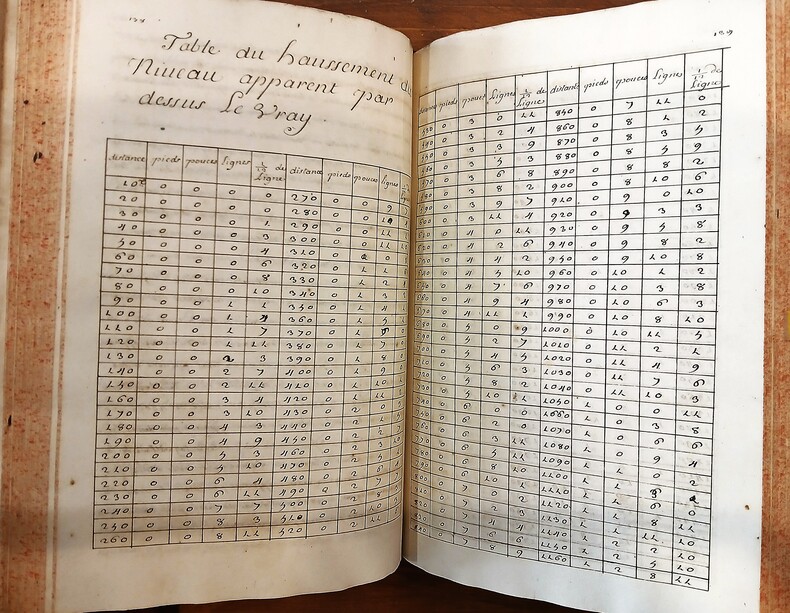 138
Table du haussement du
Niveau apparent par
dessus Le Vray.
distance pieds pouces lignes 1/12 de Ligne distance pieds pouces lignes
10 0 0 0 0 270 0 0 9
20 0 0 0 0 280 0 0 10
30 0 0 0 1 290 0 0 11
40 0 0 0 300 0 0 11
50 0 0 0 4 310 0 1 0
60 0 0 0 6 320 0 1 1
70 0 0 0 8 330 0 1 2
80 0 0 0 10 340 0 1 3
90 0 0 1 1 350 0 1 4
100 0 0 1 4 360 0 1 5
110 0 0 1 7 370 0 1 6
120 0 0 1 11 380 0 1 7
130 0 0 2 3 390 0 1 8
140 0 0 2 7 400 0 1 9
150 0 0 2 11 410 0 1 10
160 0 0 3 4 420 0 1 11
170 0 0 3 10 430 0 2 0
180 0 0 4 3 440 0 2 1
190 0 0 4 9 450 0 2 2
200 0 0 5 3 460 0 2 3
210 0 0 5 10 470 0 2 5
220 0 0 6 4 480 0 2 6
230 0 0 6 11 490 0 2 7
240 0 0 7 7 500 0 2 9
250 0 0 8 3 510 0 2 10
260 0 0 8 11 520 0 2 11
139
distance pieds pouces Lignes 1/12 de Lignes distants pieds pouces Lignes 1/12 de Ligne
530 0 3 0 11 850 0 7 11 0
540 0 3 2 4 860 0 8 1 2
550 0 3 3 9 870 0 8 3 5
560 0 3 5 3 880 0 8 5 9
570 0 3 6 8 890 0 8 8 2
580 0 3 8 2 900 0 8 10 6
590 0 3 9 7 910 0 9 0 10
600 0 3 11 4 920 0 9 3 3
610 0 4 0 11 930 0 9 5 8
620 0 4 2 6 940 0 9 8 2
630 0 4 4 2 950 0 9 10 8
640 0 4 5 10 960 0 10 1 2
650 0 4 7 6 970 0 10 3 8
660 0 4 9 4 980 0 10 6 3
670 0 4 11 1 990 0 10 8 10
680 0 5 0 9 1000 0 10 11 5
690 0 5 2 7 1010 0 11 2 1
700 0 5 4 5 1020 0 11 4 9
710 0 5 6 3 1030 0 11 7 6
720 0 5 8 2 1040 0 11 10 3
730 0 5 10 1 1050 1 0 0 11
740 0 6 0 0 1060 1 0 3 8
750 0 6 2 0 1070 1 0 6 6
760 0 6 3 11 1080 1 0 9 4
770 0 6 6 0 1090 1 1 0 2
780 0 6 8 0 1100 1 1 3
790 0 6 10 0 1110 1 1 6 0
800 0 7 0 1120 1 1 8 11
810 0 7 2 1130 1 1 11 10
820 0 7 4 4 1140 1 2 2 10
830 0 7 6 6 1150 1 2 5 10
840 0 7 8 9 1160 1 2 8 11